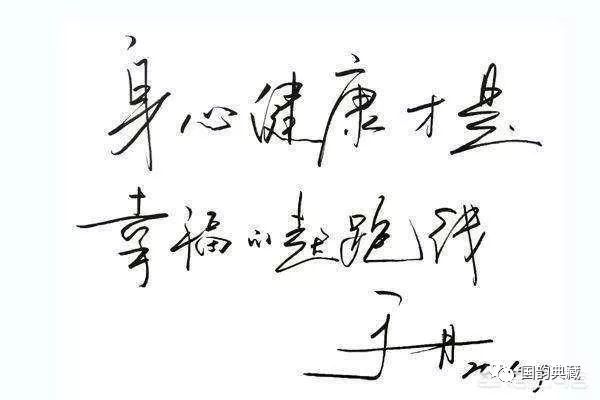 身心健康才是
幸福的起跑线
于丹
国韵典藏